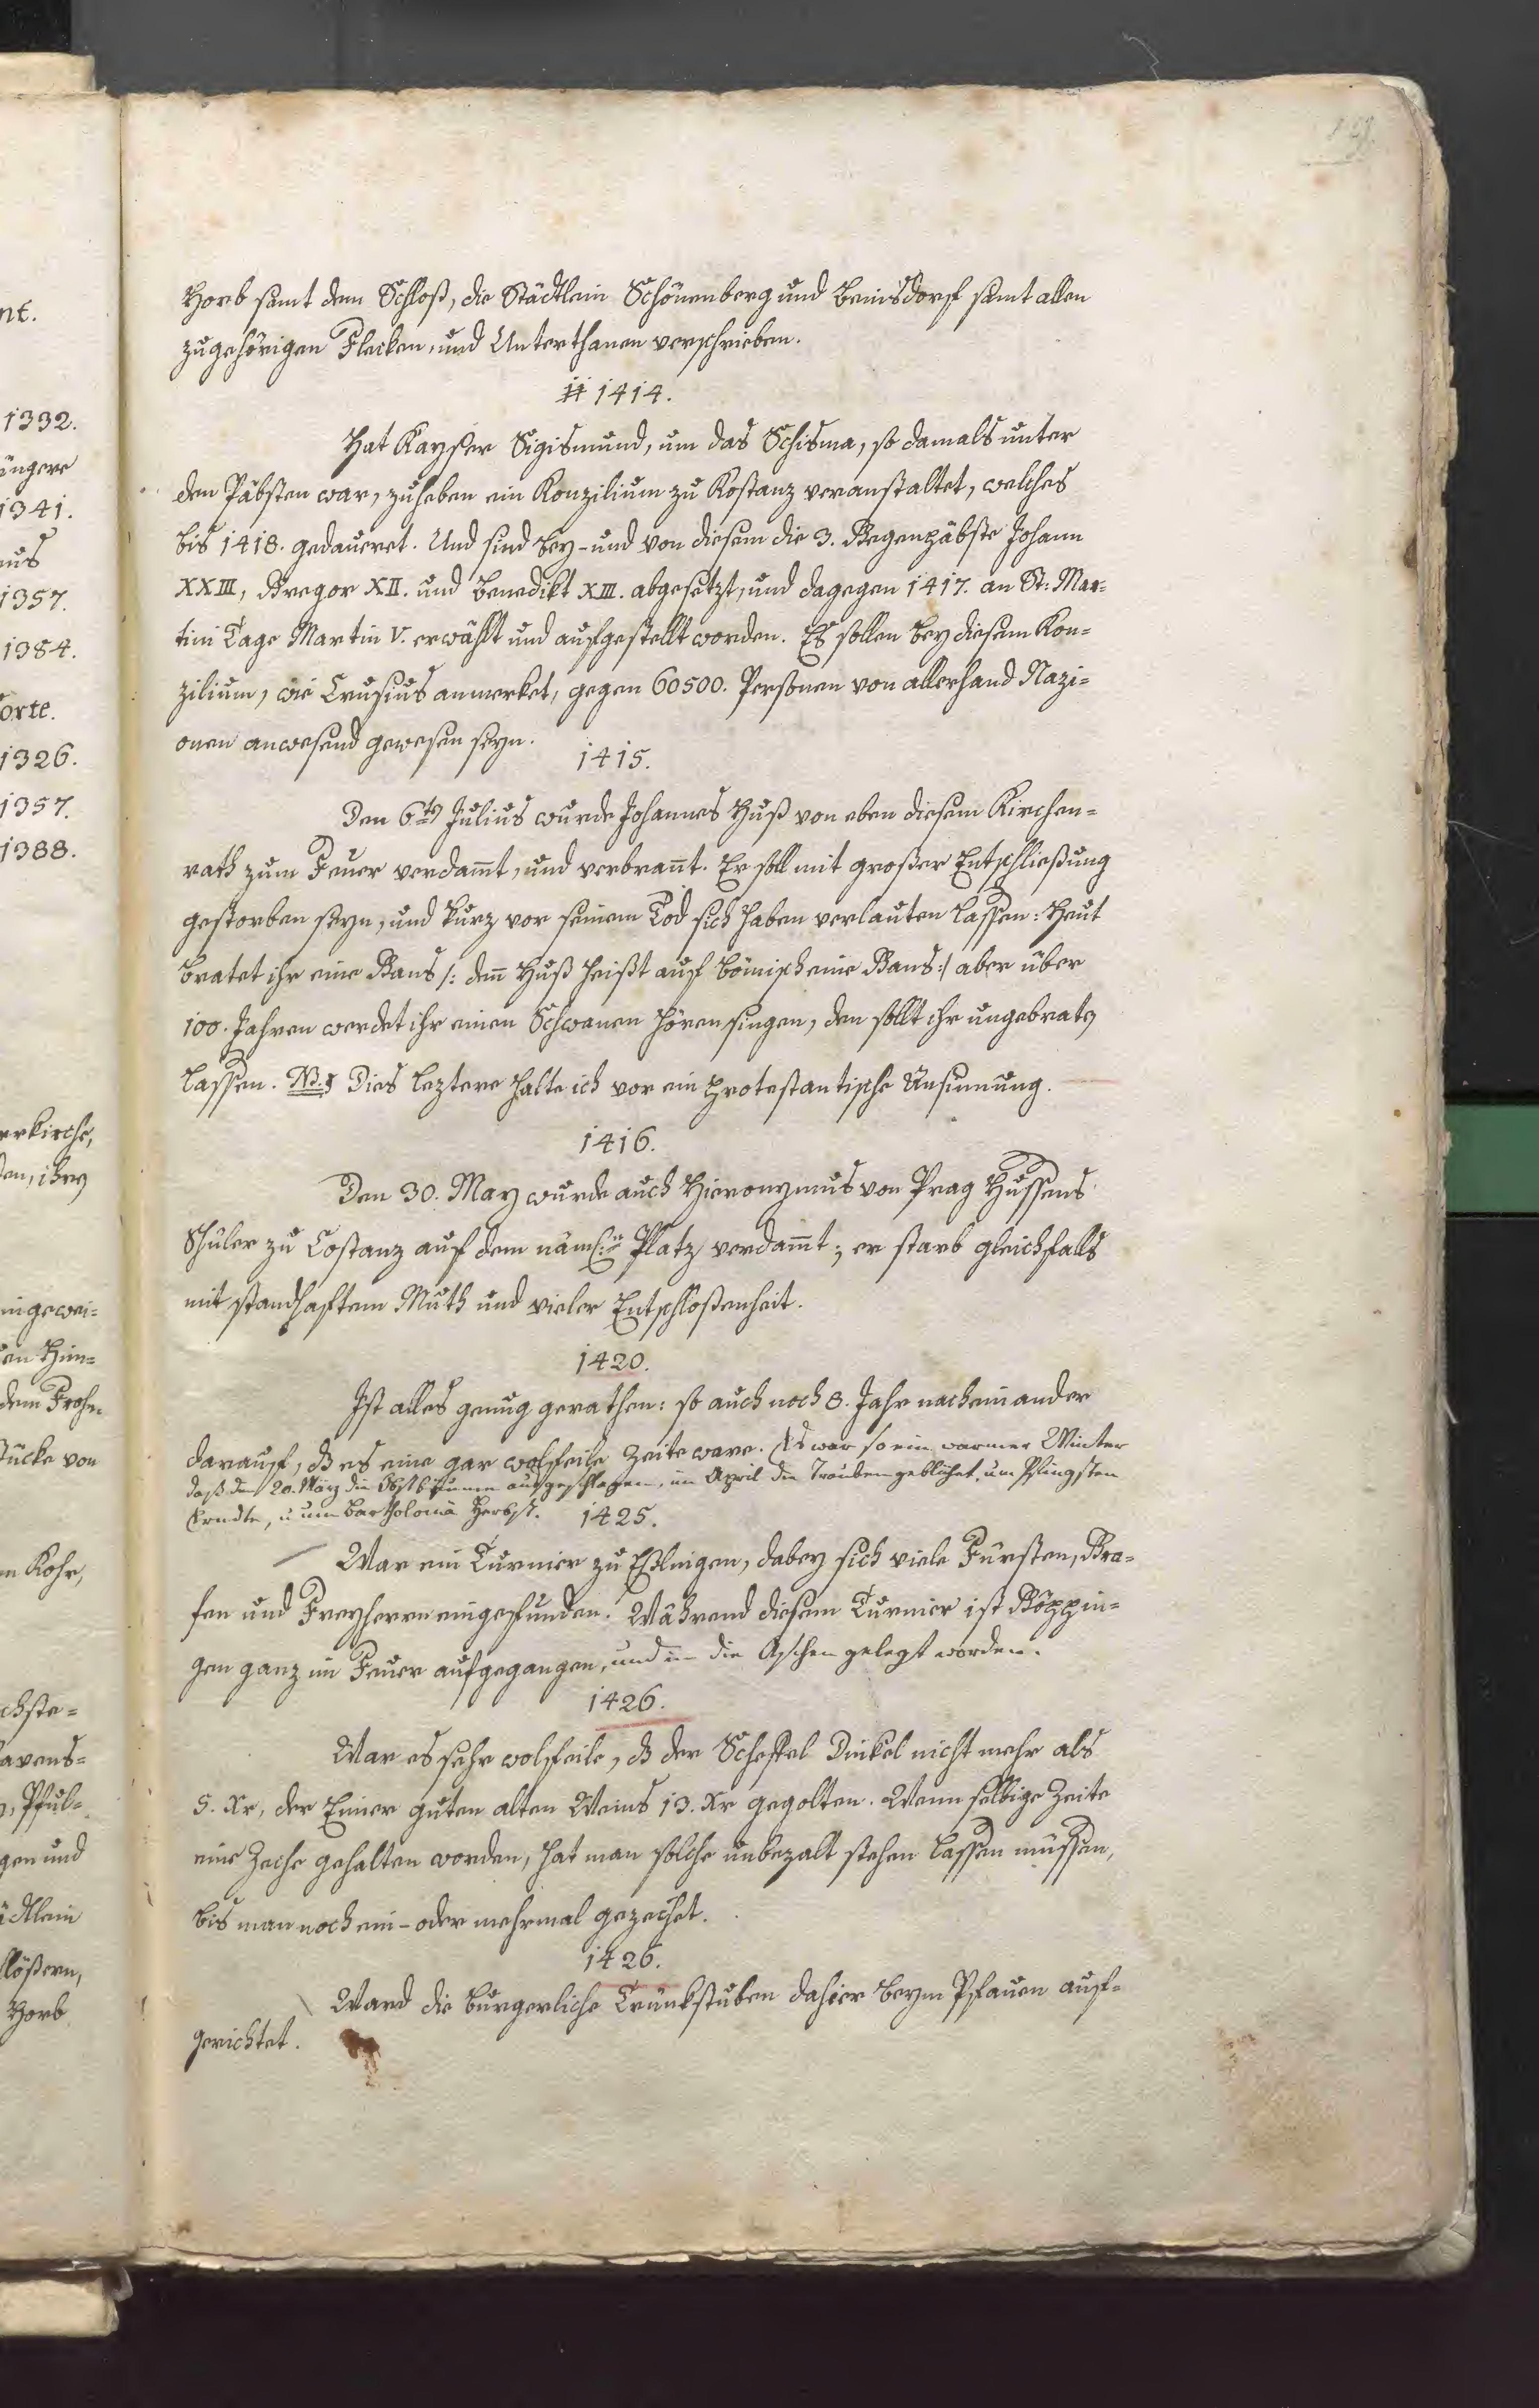 Horb samt dem Schloß, die Städtlein Schönenberg und Beinsdorf samt allen
zugehörigen Flecken, und Unterthanen verschrieben.
1414.
Hat Kayser Sigismund, um das Schisma, so damals unter
den Päbsten war, zuheben ein Konzilium zu Kostanz veranstaltet, welches
bis 1418. gedaueret. Und sind bey- und von diesem die 3. Gegenpäbste Johann
XXIII, Gregor XII. und Benedikt XIII. abgesetzt, und dagegen 1417. an St: Mar-
tini Tage Martin V. erwählt und aufgestellt worden. Es sollen bey diesem Kon-
zilium, wie Crusius anmerket, gegen 60500. Personen von allerhand Nazi-
onen anwesend gewesen seyn.
1415.
Den 6ten Julius wurde Johannes Huß von eben diesem Kirchen-
rath zum Feuer verdamt, und verbrant. Er soll mit großer Entschließung
gestorben seyn, und kurz vor seinem Tod sich haben verlauten lassen: Heut
bratet ihr eine Gans /: den Huß heißt auf bömisch eine Gans :/ aber über
100. Jahren werdet ihr einen Schwanen hören singen, den sollt ihr ungebraten
lassen. NB. Dies leztere halte ich vor ein protestantische Ansinnung.
1416.
Den 30. May wurde auch Hieronymus von Prag Hussens
Schüler zu Costanz auf dem näml: Platz verdamt; er starb gleichfalls
mit standhaftem Muth und vieler Entschloßenheit.
1420.
Ist alles genug gerathen: so auch noch 8. Jahr nacheinander
darauf, dß es eine gar wolfeile Zeite ware. Es war so ein warmer Winter
daß den 20. März die Obstbäume ausgeschlagen, im April die Trauben geblühet, um Pfingsten
Erndte, u um Bartholomä Herbst.
1425.
War ein Turnier zu Eßlingen, dabey sich viele Fürsten, Gra-
fen und Freyherrn eingefunden. Während diesem Turnier ist Göppin-
gen ganz im Feuer aufgegangen, und in die Aschen gelegt worden.
1426.
War es sehr wolfeile, dß der Scheffel Dinkel nicht mehr als
5. Xr, der Eimer guten alten Weins 13. Xr gegolten. Wenn selbige Zeite
eine Zeche gehalten worden, hat man solche unbezalt stehen lassen müssen,
bis man noch ein- oder mehrmal gezechet.
1426.
Ward die burgerliche Trünkstuben dahier beym Pfauen auf-
gerichtet.
nt.
1332.
üngere
1341.
nus
1357.
1384.
orte.
1326.
1357.
1388.
rrkirche,
den, ihren
ingewei-
dem Frohn
Stücke von
n Kohr,
chste-
avens-
Pful-
gen und
ädtlein
lößern,
Horb